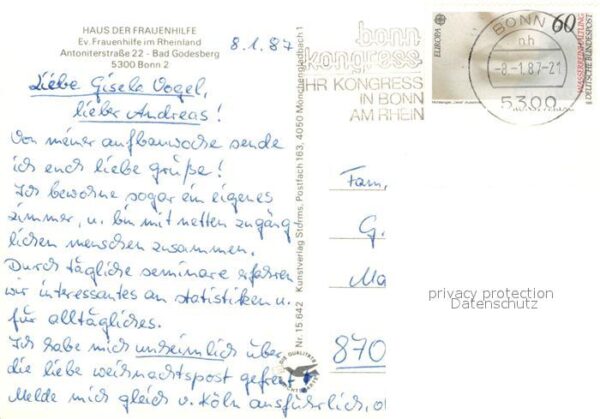 HAUS DER FRAUENHILFE
Ev. Frauenhilfe im Rheinland
Antoniterstraße 22 - Bad Godesberg
5300 Bonn 2
8.1.87
Liebe Gisela Vogel,
lieber Andreas!
Von meiner aufbauwoche sende
ich euch liebe grüße!
Ich bewohne sogar ein eigenes
zimmer, u. bin mit netten zugäng-
lichen menschen zusammen.
Durch tägliche seminare erfahren
wir interessantes an statistiken u.
für alltägliches.
Ich habe mich unheimlich über
die liebe weihnachtspost gefreut!
Melde mich gleich v. Köln ausführlich, o
Nr. 15.642 Kunstverlag Storms, Postfach 163, 4050 Mönchengladbach 1
DIE QUALITÄTS
bonn
kongress
IHR KONGRESS
IN BONN
AM RHEIN
BONN
nh
-8.-1.87-21
5300
EUROPA
60
WASSERREINHALTUNG
DEUTSCHE BUNDESPOST
Fam.
G.
Ma
870
privacy protection
Datenschutz